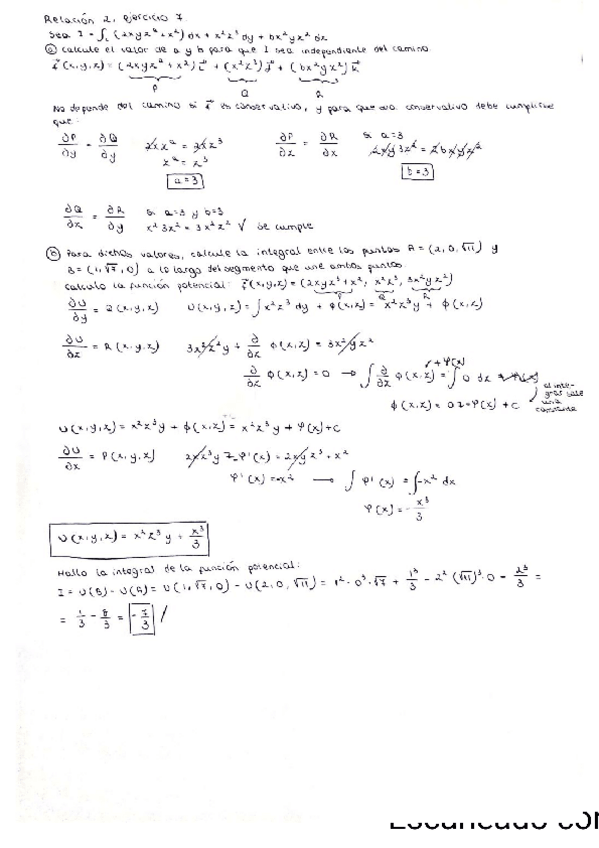 Relación 2, ejercicio 7.
Sea I = ∫_L (2xyz^a + x²) dx + x²z³ dy + bx²yz² dz
ⓐ calcule el valor de a y b para que I sea independiente del camino
f⃗(x,y,z) = (2xyz^a + x²) i⃗ + (x²z³) j⃗ + (bx²yz²) k⃗
P Q R
No depende del camino si f⃗ es conservativo, y para que sea conservativo debe cumplirse
que:
∂P/∂y = ∂Q/∂y 2xz^a = 2xz³ ∂P/∂z = ∂R/∂x Si a=3
z^a = z³ 2xy3z² = 2bxyz²
a=3 b=3
∂Q/∂z = ∂R/∂y Si a=3 y b=3
x²3z² = 3x²z² √ se cumple
ⓑ Para dichos valores, calcule la integral entre los puntos A = (2,0,√11) y
B = (1,√7,0) a lo largo del segmento que une ambos puntos
calculo la función potencial: f⃗(x,y,z) = (2xyz³+x², x²z³, 3x²yz²)
P Q R
∂U/∂y = Q(x,y,z) U(x,y,z) = ∫x²z³ dy + ϕ(x,z) = x²z³y + ϕ(x,z)
∂U/∂z = R(x,y,z) 3x²z²y + ∂/∂z ϕ(x,z) = 3x²yz²
∂/∂z ϕ(x,z) = 0 → ∫ ∂/∂z ϕ(x,z) = ∫ 0 dz + φ(x)
al inte-
grar sale
una
constante
ϕ(x,z) = 0z + φ(x) + C
U(x,y,z) = x²z³y + ϕ(x,z) = x²z³y + φ(x) + C
∂U/∂x = P(x,y,z) 2xz³y + φ'(x) = 2xyz³ + x²
φ'(x) = x² → ∫ φ'(x) = ∫ x² dx
φ(x) = x³/3
U(x,y,z) = x²z³y + x³/3
Hallo la integral de la función potencial:
I = U(B) - U(A) = U(1,√7,0) - U(2,0,√11) = 1²·0³·√7 + 1³/3 - 2²(√11)³·0 - 2³/3 =
= 1/3 - 8/3 = -7/3